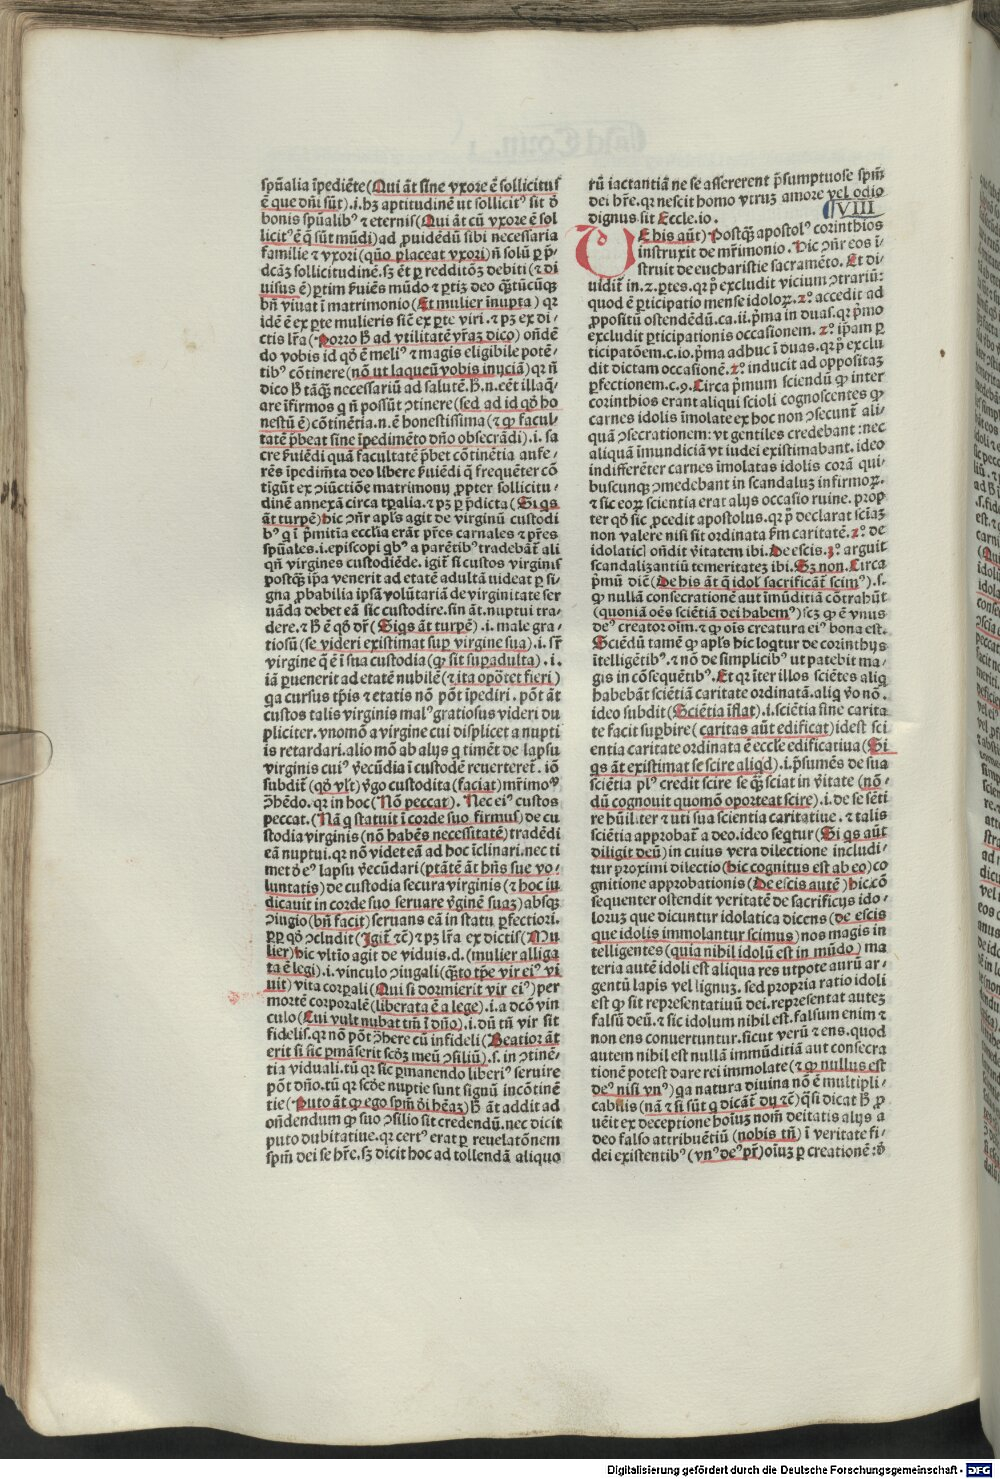 spūalia īpediēte (Qui āt sine vxore ē sollicitus
ē que dn̄i sūt).i.hꝫ aptitudinē ut sollicitꝰ sit ō
bonis spūalibꝰ ⁊ eternis (Qui āt cū vxore ē sol
licitꝰ ē q̄ sūt mūdi) ad ꝓuidēdū sibi necessaria
familie ⁊ vxori (quō placeat vxori) n̄ solū ꝑ p̄
dcāꝫ sollicitudinē. sꝫ ēt ꝑ redditōꝫ debiti (⁊ di
uisus ē) ꝑtim ẜuiēs mūdo ⁊ ꝑtiꝫ deo q̄ꝫtūcūqꝫ
bn̄ viuat ī matrimonio (Et mulier īnupta) qꝛ
idē ē ex ꝑte mulieris sič ex ꝑte viri. ⁊ pꝫ ex di⸗
ctis lr̄a (Porro ħ ad vtilitatē vr̄aꝫ dico) oñdē
do vobis id qd̄ ē meliꝰ ⁊ magis eligibile potē⸗
tibꝰ cōtinere (nō ut laqueū vobis inyciā) qꝛ n̄
dico ħ tāqꝫ necessariū ad salutē. ħ.n.eēt illaq̄⸗
are īfirmos q n̄ possūt ↄtinere (sed ad id qd̄ ho
nestū ē) cōtinētia.n.ē honestissima (⁊ qꝙ facul⸗
tatē p̄beat sine īpedimēto dn̄o obsecrādi).i.sa
cre ẜuiēdi quā facultatē p̄bet cōtinētia aufe⸗
rēs īpedimta deo libere ẜuiēdi q̄ frequēter cō
tīgūt ex ↄiūctiōe matrimony ꝓpter sollicitu⸗
dinē annexā circa tꝑalia. ⁊ pꝫ ꝑ p̄dicta (Si qs
āt turpē) hic ↄn̄r apl̄s agit de virginū custodi
bꝰ q ī p̄mitiua ecclīa erāt pr̄es carnales ⁊ pr̄es
spūales.i.episcopi qbꝰ a parētibꝰ tradebāt̄ ali
qn̄ virgines custodiēde. igit̄ si custos virginis
postqꝫ ip̄a venerit ad etatē adultā uideat ꝑ si⸗
gna ꝓbabilia ip̄sā volūtariā de virginitate ser
uāda debet eā sic custodire. sin āt. nuptui tra⸗
dere. ⁊ ħ ē qd̄ dr̄ (Siqs āt turpē).i.male gra⸗
tiosū (se videri existimat suꝑ virgine sua).i.sr̄
virgine q̄ ē ī sua custodia (qꝙ sit suꝑadulta).i.
iā ꝑuenerit ad etatē nubilē (⁊ ita opōtet fieri)
qa cursus tꝑis ⁊ etatis nō pōt īpediri. pōt āt
custos talis virginis malꝰ gratiosus videri du
pliciter. vnomō a virgine cui displicet a nupti
is retardari. aliomō ab alys q timēt de lapsu
virginis cuiꝰ v̄ecūdia ī custodē reuerteret̄. iō
subdit̄ (qd̄ vl̄t) v̄go custodita (faciat) mr̄imoꝰ
ↄhēdo. qꝛ in hoc (Nō peccat). Nec eiꝰ custos
peccat. (Nā q statuit ī corde suo firmus) de cu
stodia virginis (nō habēs necessitatē) tradēdi
eā nuptui. qꝛ nō videt eā ad hoc īclinari. nec ti
met ō eꝰ lapsu v̄ecūdari (ptātē āt hn̄s sue vo⸗
luntatis) de custodia secura virginis (⁊ hoc iu
dicauit in corde suo seruare v̄ginē suaꝫ) absqꝫ
ↄiugio (bn̄ facit) seruans eā in statu ꝑfectiori.
ꝑp qd̄ ↄcludit (Igit̄ ⁊c̄) ⁊ pꝫ lr̄a ex dictis (Mu
lier) hic vltīo agit de viduis.d.(mulier alliga
ta ē legi).i.vinculo ↄiugali (q̄ꝫto tꝑe vir eiꝰ vi
uit) vita corꝑali (Qui si dormierit vir eiꝰ) per
mortē corporalē (liberata ē a lege).i.a dcō vin
culo (Cui vult nubat tm̄ ī dn̄o).i.dū tn̄ vir sit
fidelis. qꝛ nō pōt ↄhere cū infideli (Beatior āt
erit si sic ꝑmāserit scd̄ꝫ meū ↄsiliū).s.in ↄtinē⸗
tia viduali. tū qꝛ sic ꝑmanendo liberiꝰ seruire
pōt dn̄o. tū qꝛ scd̄e nuptie sunt signū incōtinē
tie (Puto āt qꝙ ego spm̄ dī hēaꝫ) ħ āt addit ad
on̄dendum qꝙ suo ↄsilio sit credendū. nec dicit
puto dubitatiue. qꝛ certꝰ erat ꝑ reuelatōnem
spm̄ dei se hr̄e. sꝫ dicit hoc ad tollendā aliquo
rū iactantiā ne se assererent p̄sumptuose spm̄
dei hr̄e. qꝛ nescit homo vtruꝫ amore vel odio
dignus sit Eccle.io.
VIII
DE his aūt) Postqꝫ apostolꝰ corinthios
instruxit de mr̄imonio. Hic ↄn̄r eos ī⸗
struit de eucharistie sacramēto. Et di⸗
uidit̄ in.2.ꝑtes. qꝛ p̄ excludit vicium ↄtrariū:
quod ē ꝑticipatio mense idoloꝝ. 2º. accedit ad
ꝓpositū ostendēdū.ca.ii.p̄ma in duas. qꝛ p̄mo
excludit ꝑticipationis occasionem. 2º. ip̄am ꝑ
ticipatōem.c.io.p̄ma adhuc ī duas. qꝛ p̄ exclu
dit dictam occasionē. 2º. inducit ad oppositaꝫ
ꝑfectionem.c.9. Circa p̄mum sciendū qꝙ inter
corinthios erant aliqui scioli cognoscentes qꝙ
carnes idolis īmolate ex hoc non ↄsecunt̄ ali⸗
quā ↄsecrationem: vt gentiles credebant: nec
aliquā īmundiciā vt iudei existimabant. ideo
indifferēter carnes īmolatas idolis corā qui⸗
buscunqꝫ ↄmedebant in scandaluꝫ infirmoꝝ.
⁊ sic eoꝝ scientia erat alys occasio ruine. prop
ter qd̄ sic ꝓcedit apostolus. qꝛ p̄ declarat sciāꝫ
non valere nisi sit ordinata ꝑm caritatē. 2º. de
idolaticl on̄dit v̄itatem ibi. De escis. 3º. arguit
scandalizantiū temeritateꝫ ibi. Sꝫ non. Circa
p̄mū diē (De his āt q̄ idol̄ sacrificāt̄ scimꝰ).s.
qꝙ nullā consecrationē aut īmūditiā cōtrahūt
(quoniā oēs sciētiā dei habemꝰ) scꝫ qꝙ ē vnus
deꝰ creator oīm. ⁊ qꝙ oīs creatura eiꝰ bona est.
Sciēdū tamē qꝙ apl̄s hic loqtur de corinthijs
ītelligētibꝰ. ⁊ nō de simplicibꝰ ut patebit ma⸗
gis in cōsequētibꝰ. Et qꝛ īter illos sciētes aliq
habebāt sciētiā caritate ordinatā. aliq v̄o nō.
ideo subdit (Sciētia īflat).i.sciētia sine carita
te facit suꝑbire (caritas aūt edificat) idest sci
entia caritate ordinata ē eccl̄ie edificatiua (Si
qs āt existimat se scire aliqd).i.p̄sumēs de sua
sciētia plꝰ credit scire se qꝫ sciat in v̄itate (nō⸗
dū cognouit quomō oporteat scire).i.de se sēti
re hūilit̄er ⁊ uti sua scientia caritatiue. ⁊ talis
sciētia approbat̄ a deo. ideo seqtur (Si qs aūt
diligit deū) in cuius vera dilectione includi⸗
tur proximi dilectio (hic cognitus est ab eo) co
gnitione approbationis (De escis autē) hic cō
sequenter ostendit veritatē de sacrificijs ido⸗
lorūꝫ que dicuntur idolatica dicens (de escis
que idolis immolantur scimus) nos magis in
telligentes (quia nihil idolū est in mūdo) ma
teria autē idoli est aliqua res utpote aurū ar⸗
gentū lapis vel lignuꝫ. sed propria ratio idoli
est qꝙ sit representatiuū dei. representat auteꝫ
falsū deū. ⁊ sic idolum nihil est. falsum enim ⁊
non ens conuertuntur. sicut verū ⁊ ens. quod
autem nihil est nullā immūditiā aut consecra
tionē potest dare rei immolate (⁊ qꝙ nullus est
deꝰ nisi vnꝰ) qa natura diuina nō ē multipli⸗
cabilis (nā ⁊ si sūt q dicāt̄ dij ⁊c̄) q̄si dicat ħ ꝓ
uēit ex deceptione hoīuꝫ nom̄ deitatis alys a
deo falso attribuētiū (nobis tn̄) ī veritate fi⸗
dei existentibꝰ (vnꝰ deꝰ pr̄) oīuꝫ ꝑ creationē: ō
Digitalisierung gefördert durch die Deutsche Forschungsgemeinschaft - DFG